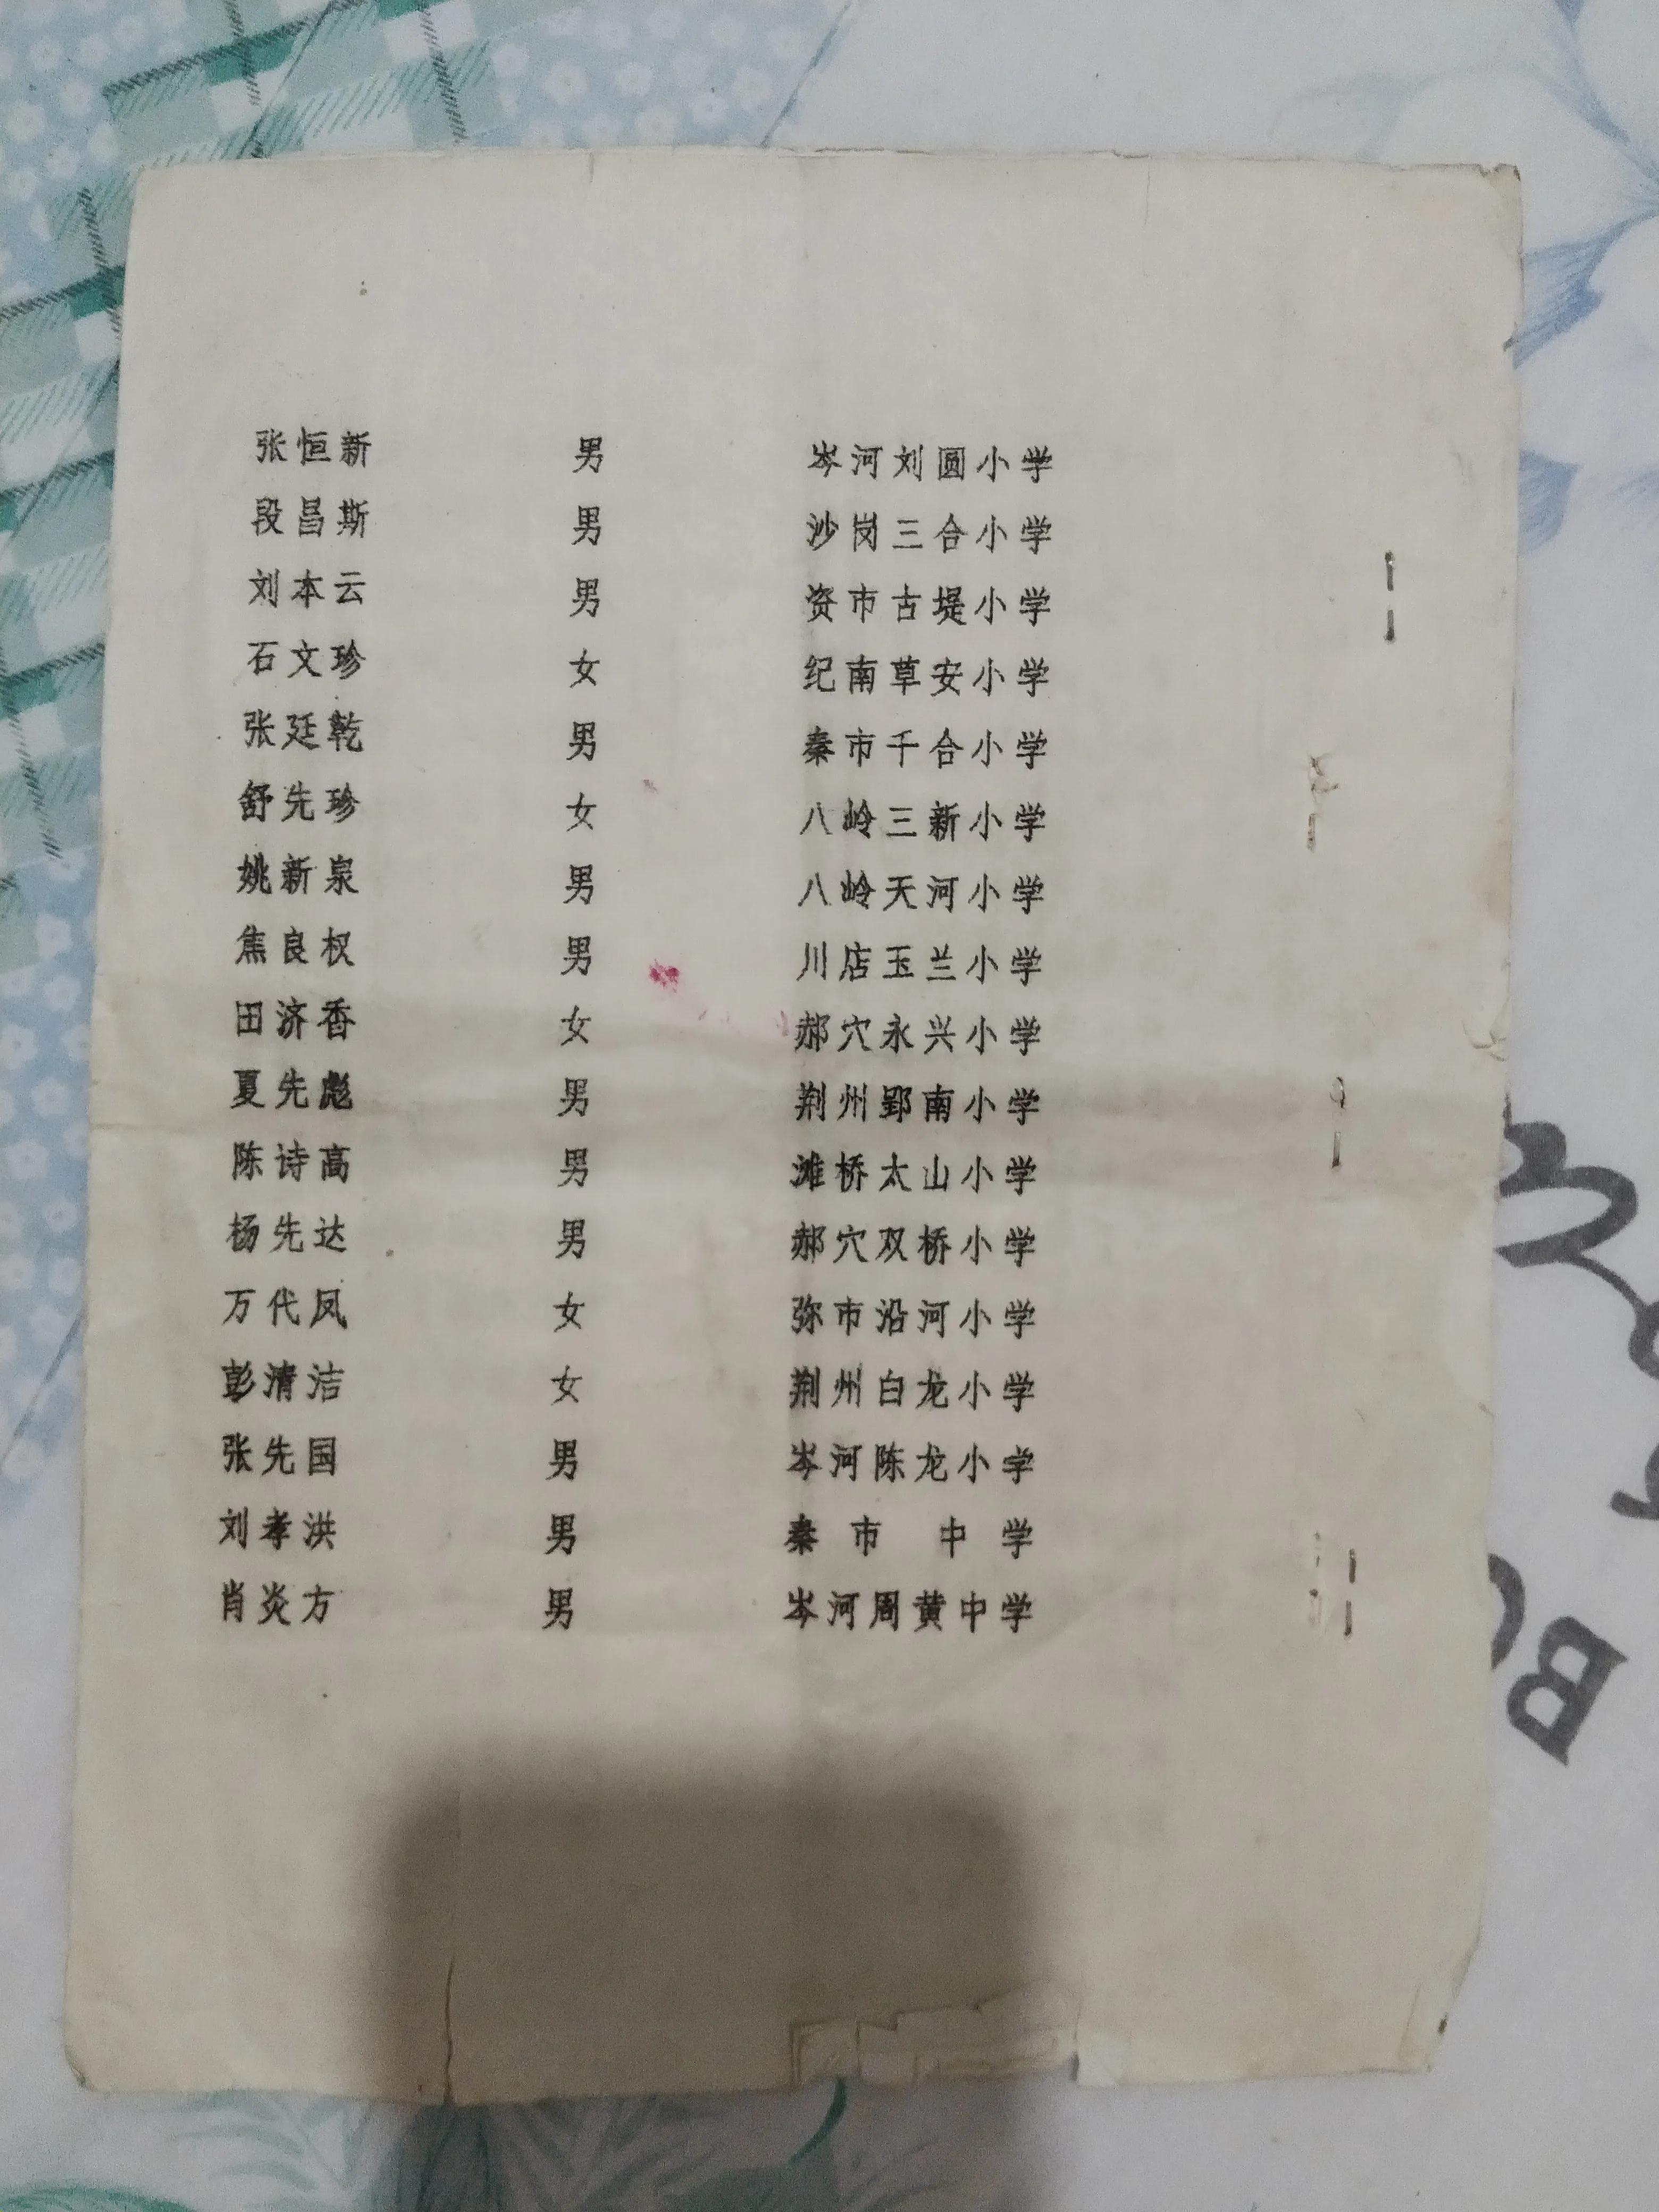 张恒新 男 岑河刘圆小学
段昌斯 男 沙岗三合小学
刘本云 男 资市古堤小学
石文珍 女 纪南草安小学
张廷乾 男 秦市千合小学
舒先珍 女 八岭三新小学
姚新泉 男 八岭天河小学
焦良权 男 川店玉兰小学
田济香 女 郝穴永兴小学
夏先彪 男 荆州郢南小学
陈诗高 男 滩桥太山小学
杨先达 男 郝穴双桥小学
万代凤 女 弥市沿河小学
彭清洁 女 荆州白龙小学
张先国 男 岑河陈龙小学
刘孝洪 男 秦市中学
肖炎方 男 岑河周黄中学